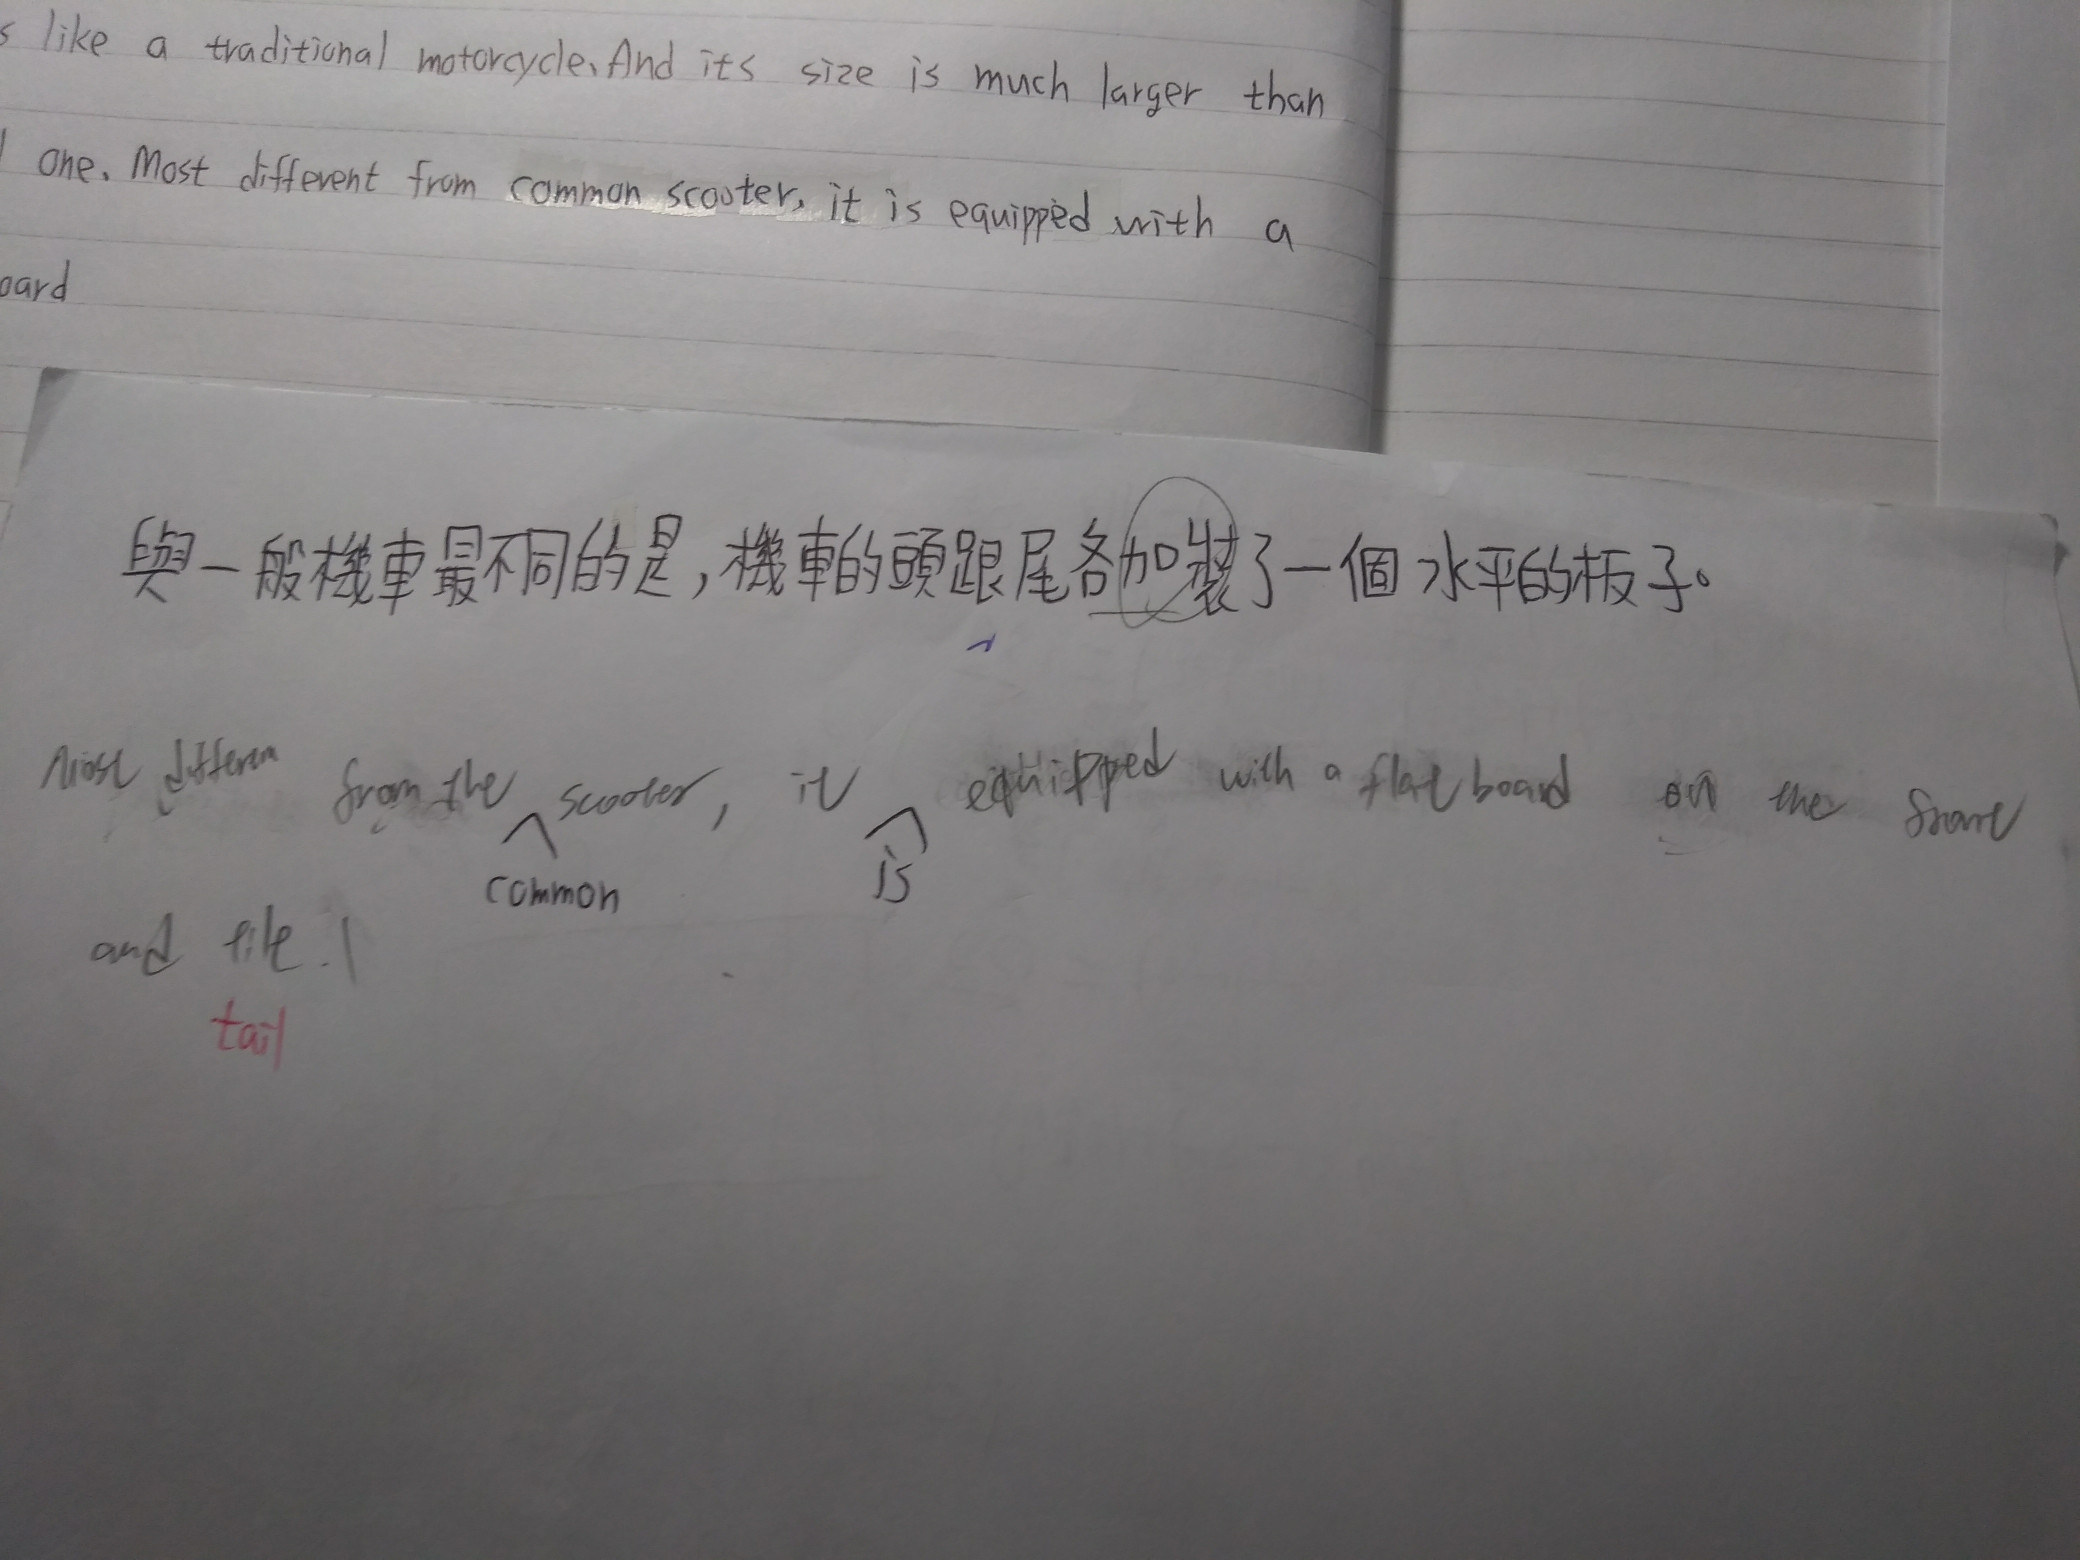 like a traditional motorcycle. And its size is much larger than
one. Most different from common scooter, it is equipped with a
oard
與一般機車最不同的是,機車的頭跟尾各加裝了一個水平的板子。
Most differen from the scooter, it equipped with a flat board on the front
common is
and tile.
tail